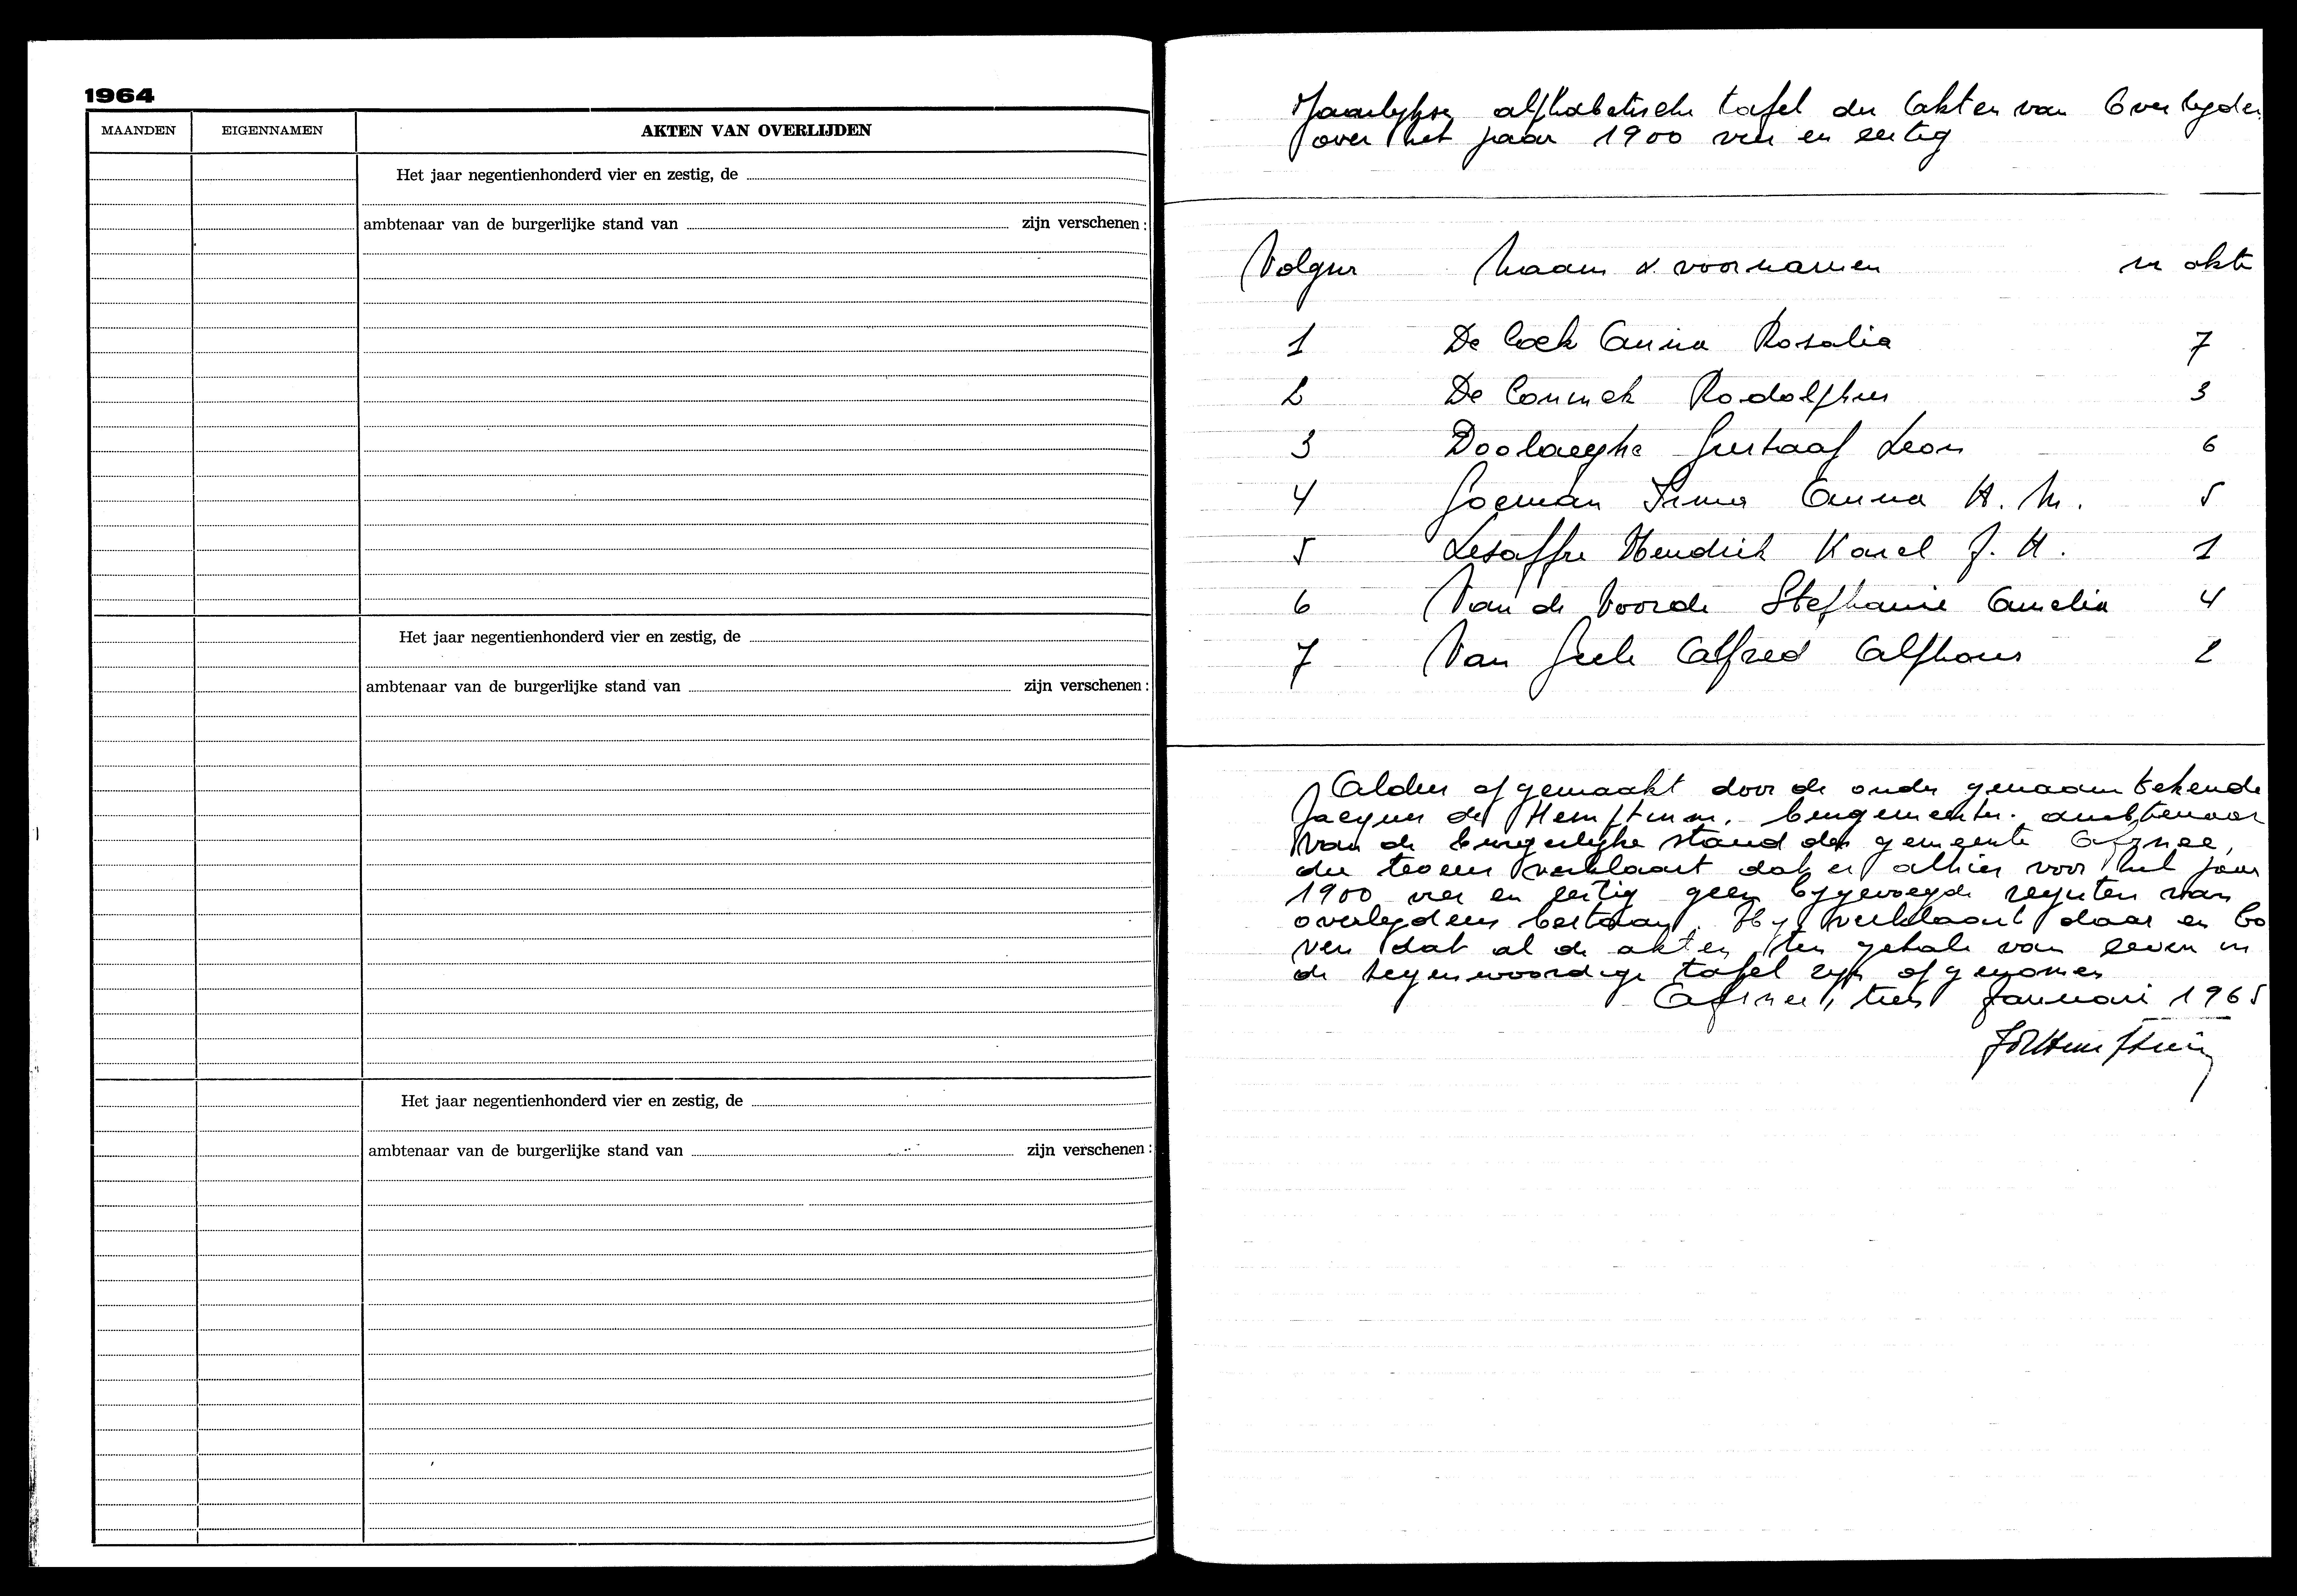 1964
MAANDEN EIGENNAMEN AKTEN VAN OVERLIJDEN
Het jaar negentienhonderd vier en zestig, de
ambtenaar van de burgerlijke stand van zijn verschenen:
Het jaar negentienhonderd vier en zestig, de
ambtenaar van de burgerlijke stand van zijn verschenen:
Het jaar negentienhonderd vier en zestig, de
ambtenaar van de burgerlijke stand van zijn verschenen:
Jaarlykse alphabetische tafel der Akten van Overlyden
over het jaar 1900 vier en zestig
Volgnr Naam & voornamen nr akte
1 De Cock Anna Rosalia 7
2 De Coninck Rodolphus 3
3 Doolaeghe Gustaaf Leon 6
4 Goeman Irma Anna H. M. 5
5 Lesaffre Hendrik Karel J. H. 1
6 Van de Voorde Stephanie Amelia 4
7 Van Alfred Alphons 2
Aldus afgemaakt door de onder genaamtekende
Jacques de Hemptinne, burgemeester. ambtenaar
van de burgerlyke stand der gemeente Afsnee,
die tevens verklaart dat er alhier voor het jaar
1900 vier en zestig geen bygevoegde registers van
overlydens bestaan. Hy verklaart daar en bo
ven dat al de akten, ten getale van zeven in
de tegenwoordige tafel zyn afgenomen
Afsnee, twee Januari 1965